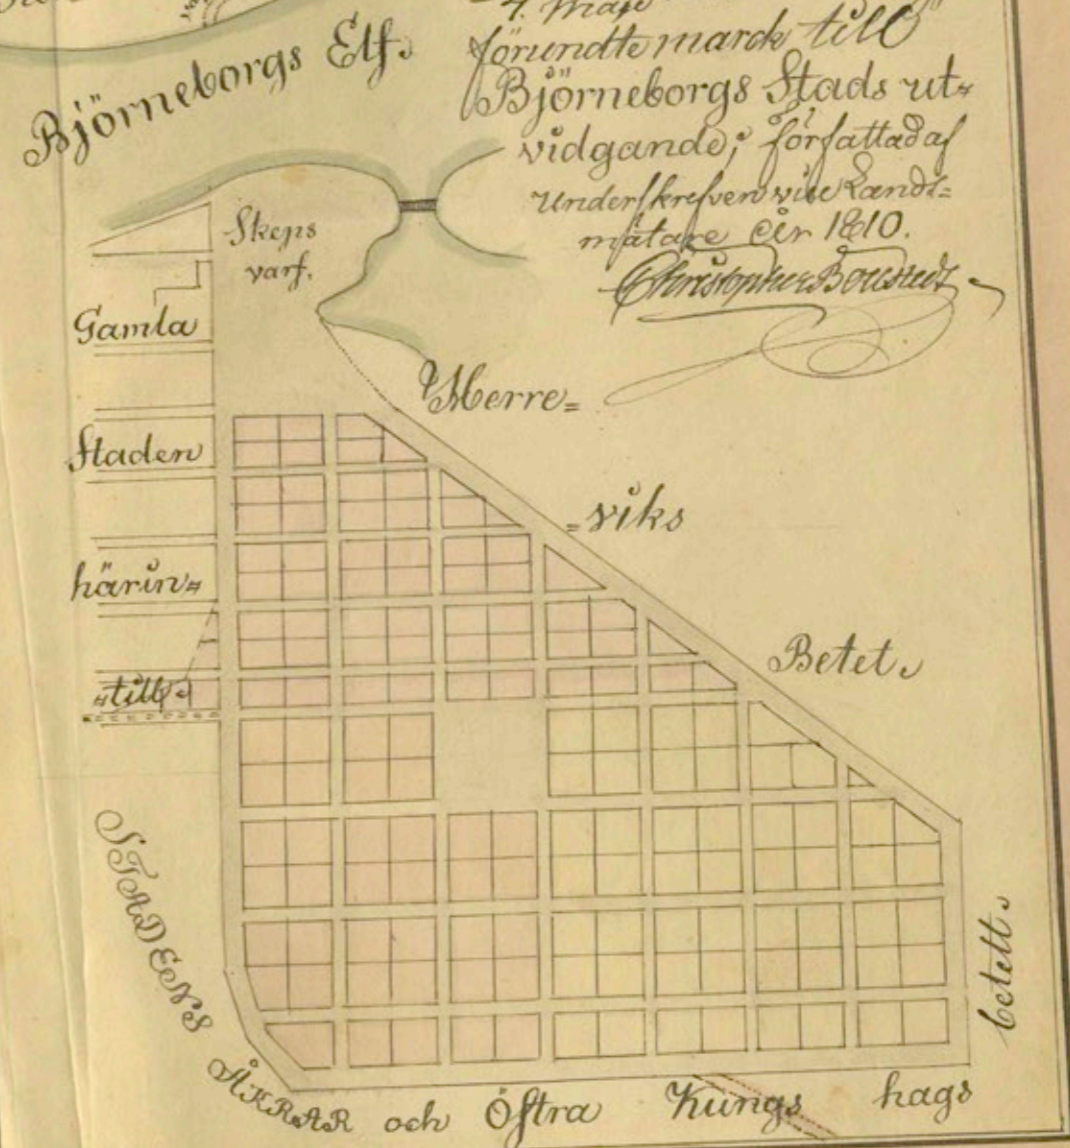 Björneborgs Elf.
4. Maje
förundte marck till
Björneborgs Stads ut=
vidgande; författad af
Underskrefven vice Landt=
mätare år 1810.
Christopher Boustedt
Skeps
varf.
Gamla
Staden
härin=
=till.
Merre=
=viks
Betet.
STADENS ÅKRAR och Östra Kungs hags
betett.